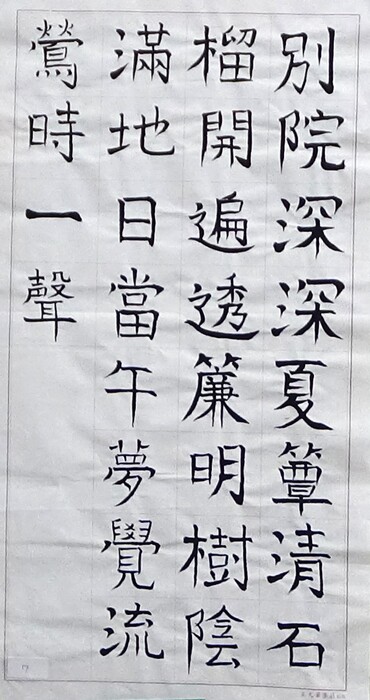 別院深深夏簟清石
榴開遍透簾明樹陰
滿地日當午夢覺流
鶯時一聲